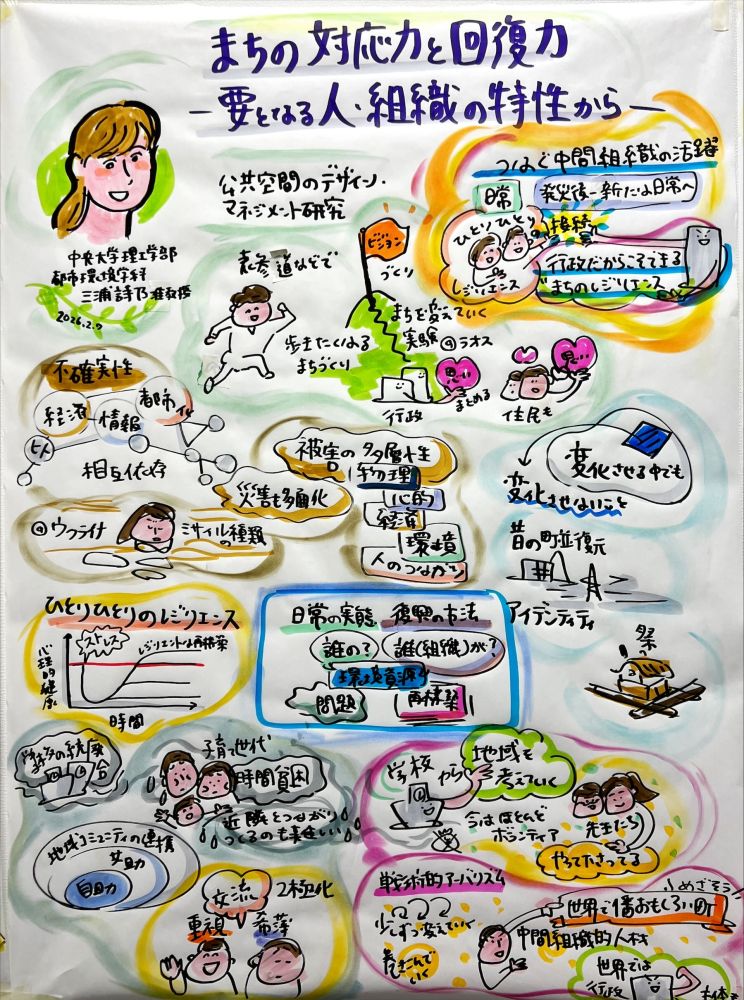 まちの対応力と回復力
－要となる人・組織の特性から－
公共空間のデザイン・
マネジメント研究
中央大学理工学部
都市環境学科
三浦詩乃 准教授
2026.2.9
つなぐ中間組織の活躍
日常
発災後－新たな日常へ
ひとりひとり
レジリエンス
接続
行政だからこそできる
まちのレジリエンス
表参道などで
歩きたくなる
まちづくり
ビジョン
づくり
まちを変えていく
実験
ラオス
行政
思い
まとめる
思い
住民も
不確実性
経済
情報
都市
ヒト
相互依存
災害も多面化
ウクライナ
ミサイルの種類
被害の多層性
物理
心的
経済
環境
人のつながり
変化させる中でも
変化させないこと
昔の町並復元
アイデンティティ
祭
ひとりひとりのレジリエンス
心理的健康
ストレス
レジリエントな再構築
時間
日常の実態
復興の方法
誰の?
誰(組織)が?
環境資源
問題
再構築
学校の統廃合
子育て世代
時間貧困
近隣とつながり
つくるのも難しい
地域コミュニティの連携
共助
自助
学校から
地域も
考えていく
今はほとんど
ボランティア
先生たち
やってくださってる
交流
2極化
重視
希薄
戦術的アーバニズム
少しずつ変えていく
巻きこんで
いく
めざそう
世界で1番おもしろい町
中間組織的人材
世界では
行政